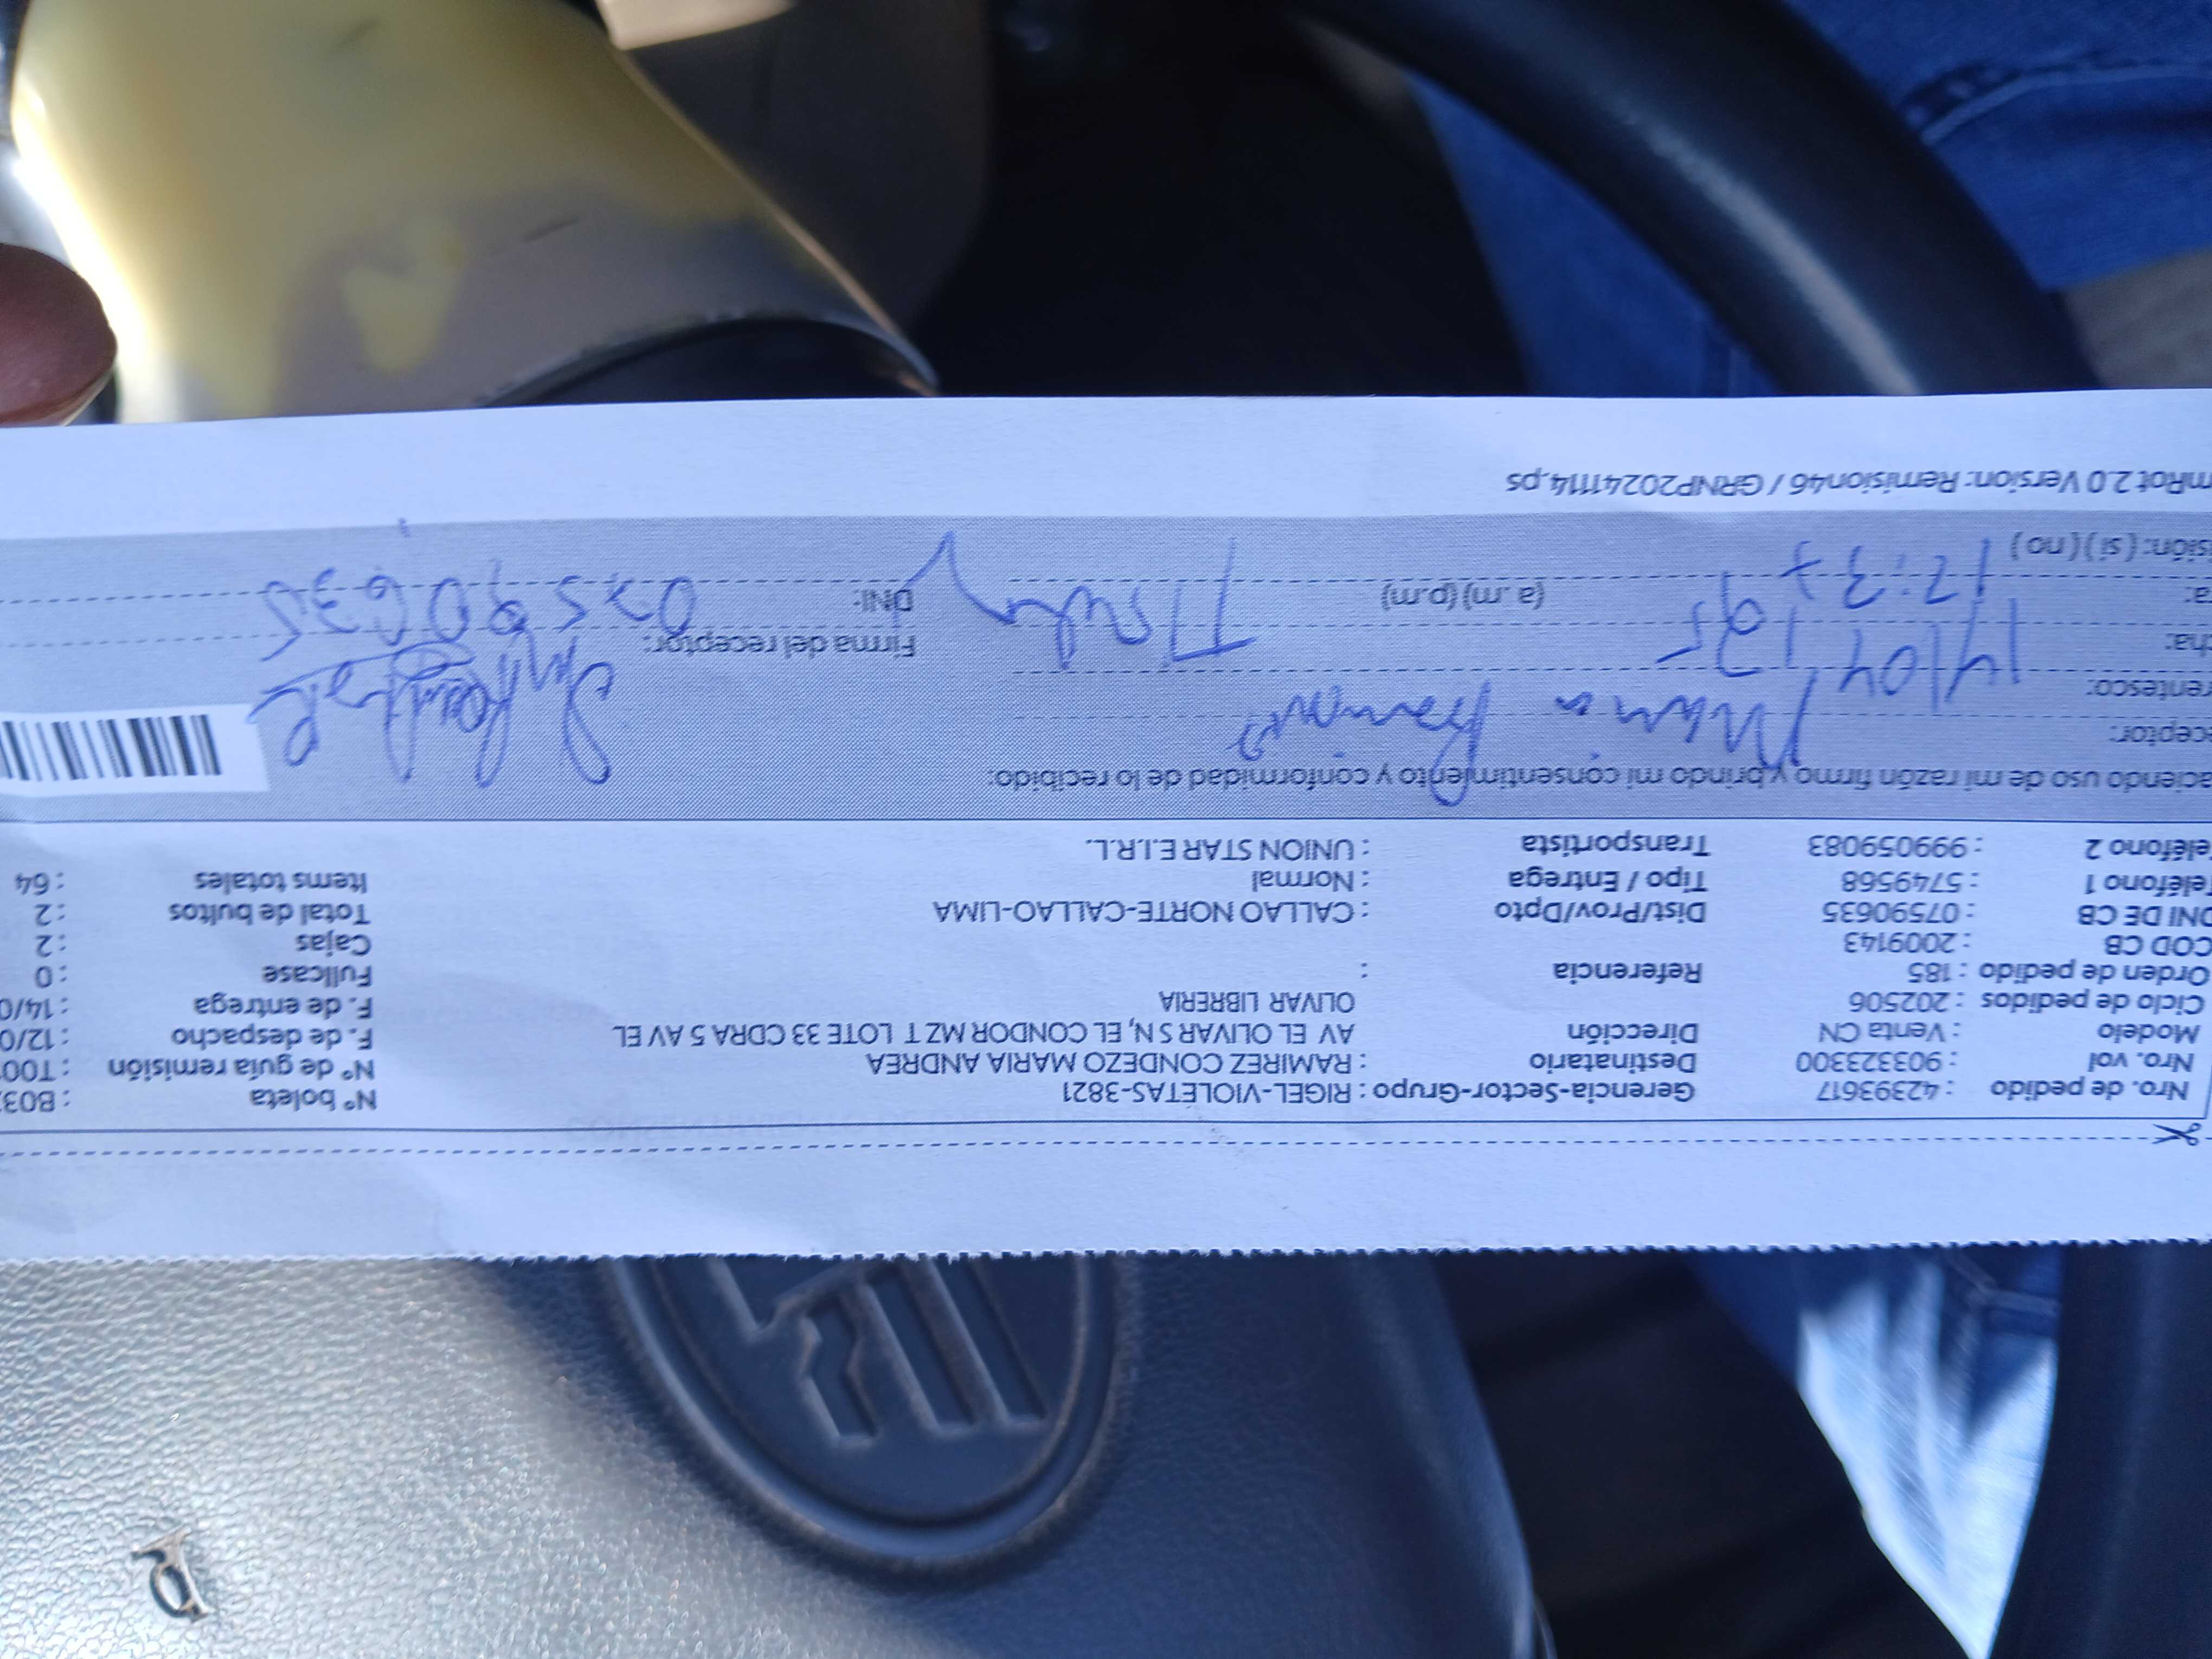 Nro. de pedido : 42393617 Gerencia-Sector-Grupo : RIGEL-VIOLETAS-3821 N° boleta : B03
Nro. vol : 903323300 Destinatario : RAMIREZ CONDEZO MARIA ANDREA N° de guía remisión : T00
Modelo : Venta CN Dirección AV EL OLIVAR S N, EL CONDOR MZ T LOTE 33 CDRA 5 AV EL F. de despacho : 12/0
Ciclo de pedidos : 202506 OLIVAR LIBRERIA F. de entrega : 14/0
Orden de pedido : 185 Referencia : Fullcase : 0
COD CB : 2009143 Cajas : 2
DNI DE CB : 07590635 Dist/Prov/Dpto : CALLAO NORTE-CALLAO-LIMA Total de bultos : 2
eléfono 1 : 5749568 Tipo / Entrega : Normal Items totales : 64
eléfono 2 : 999059083 Transportista : UNION STAR E.I.R.L.
aciendo uso de mi razón firmo y brindo mi consentimiento y conformidad de lo recibido:
ceptor: Maria
rentesco: Titular Firma del receptor:
cha: 14/04/25
ra: 12:37 (a.m) (p.m) DNI: 07590635
isión: ( si ) ( no )
mRot 2.0 Version: Remision46 / GRNP20241114.ps